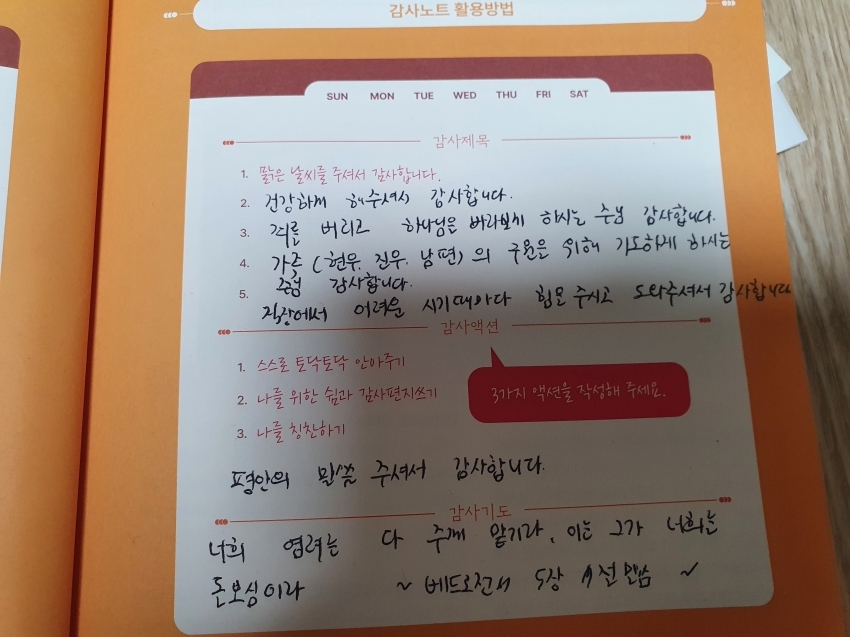 감사노트 활용방법
SUN MON TUE WED THU FRI SAT
감사제목
1. 맑은 날씨를 주셔서 감사합니다.
2. 건강하게 해주셔서 감사합니다.
3. 버리고 하나님은 바라보게 하시는 주님 감사합니다.
4. 가족 (현우, 진우, 남편) 의 구원을 위해 기도하게 하시는
주님 감사합니다.
5. 직장에서 어려운 시기때마다 힘을 주시고 도와주셔서 감사합니다
감사액션
1. 스스로 토닥토닥 안아주기
2. 나를 위한 쉼과 감사편지쓰기
3. 나를 칭찬하기
3가지 액션을 작성해 주세요.
평안의 말씀 주셔서 감사합니다.
감사기도
너희 염려는 다 주께 맡기라, 이는 그가 너희는
돈보심이라 ~ 베드로전서 5장 7절 말씀 ~